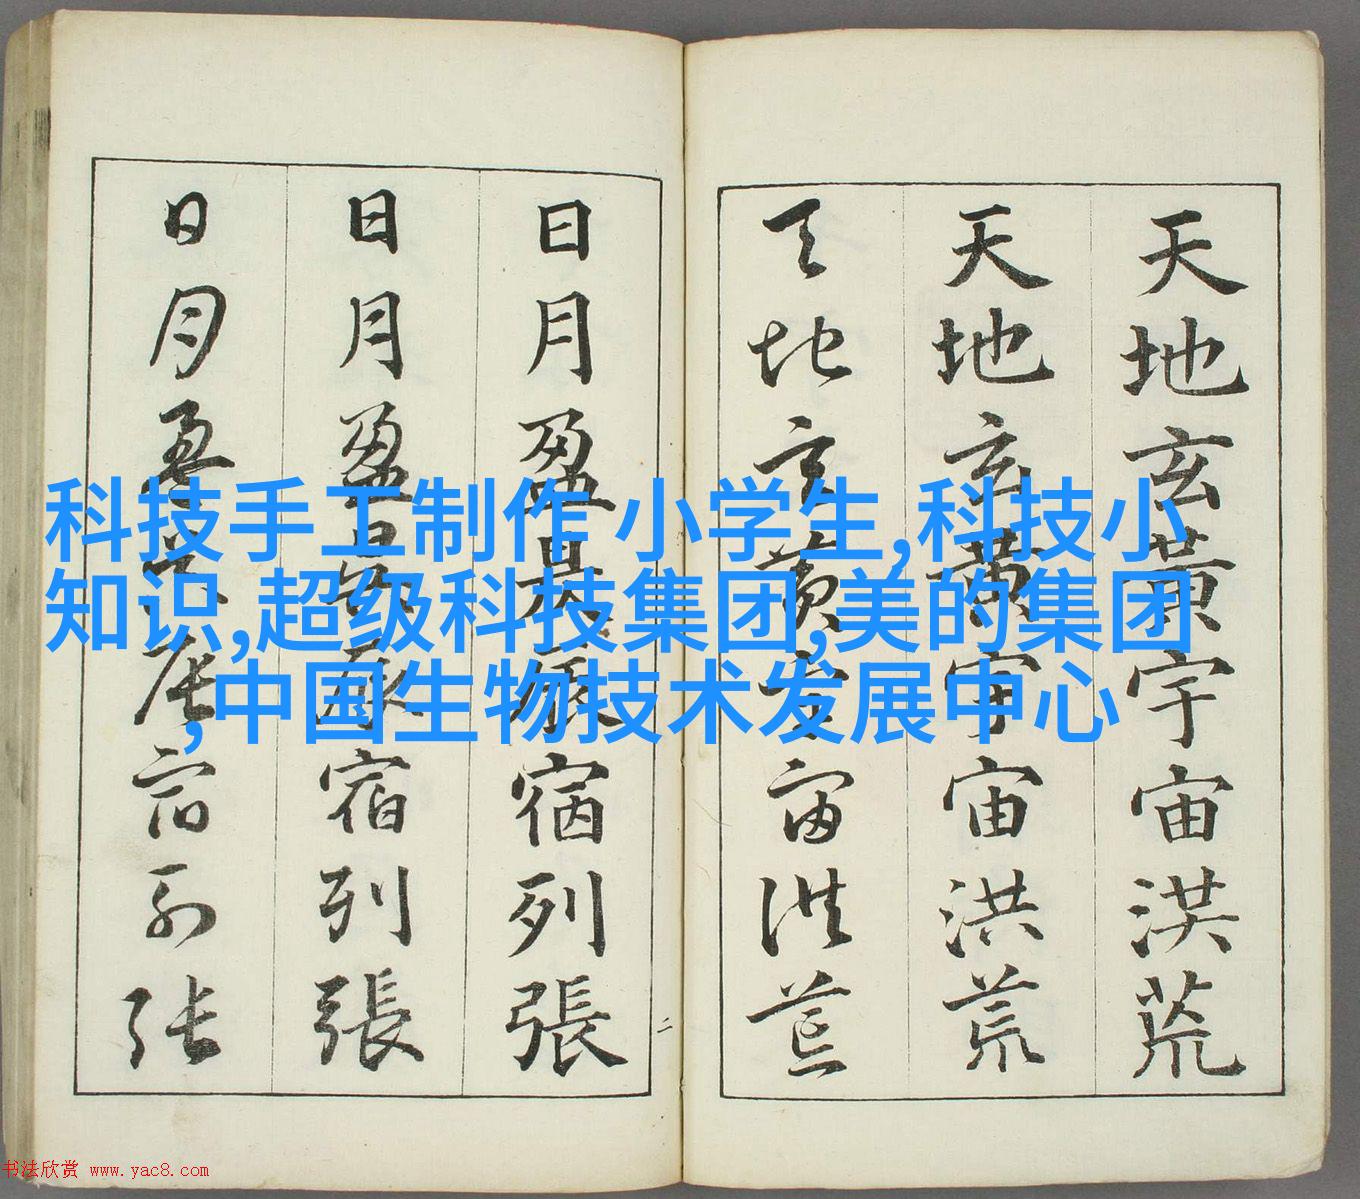 天地玄黃宇宙洪荒
天地玄黃宇宙洪荒
天地玄黃宇宙洪荒
日月盈昃辰宿列張
日月盈昃辰宿列張
日月盈昃辰宿列張
二
科技手工制作 小学生,科技小
知识,超级科技集团,美的集团
,中国生物技术发展中心
书法欣赏 www.yac8.com